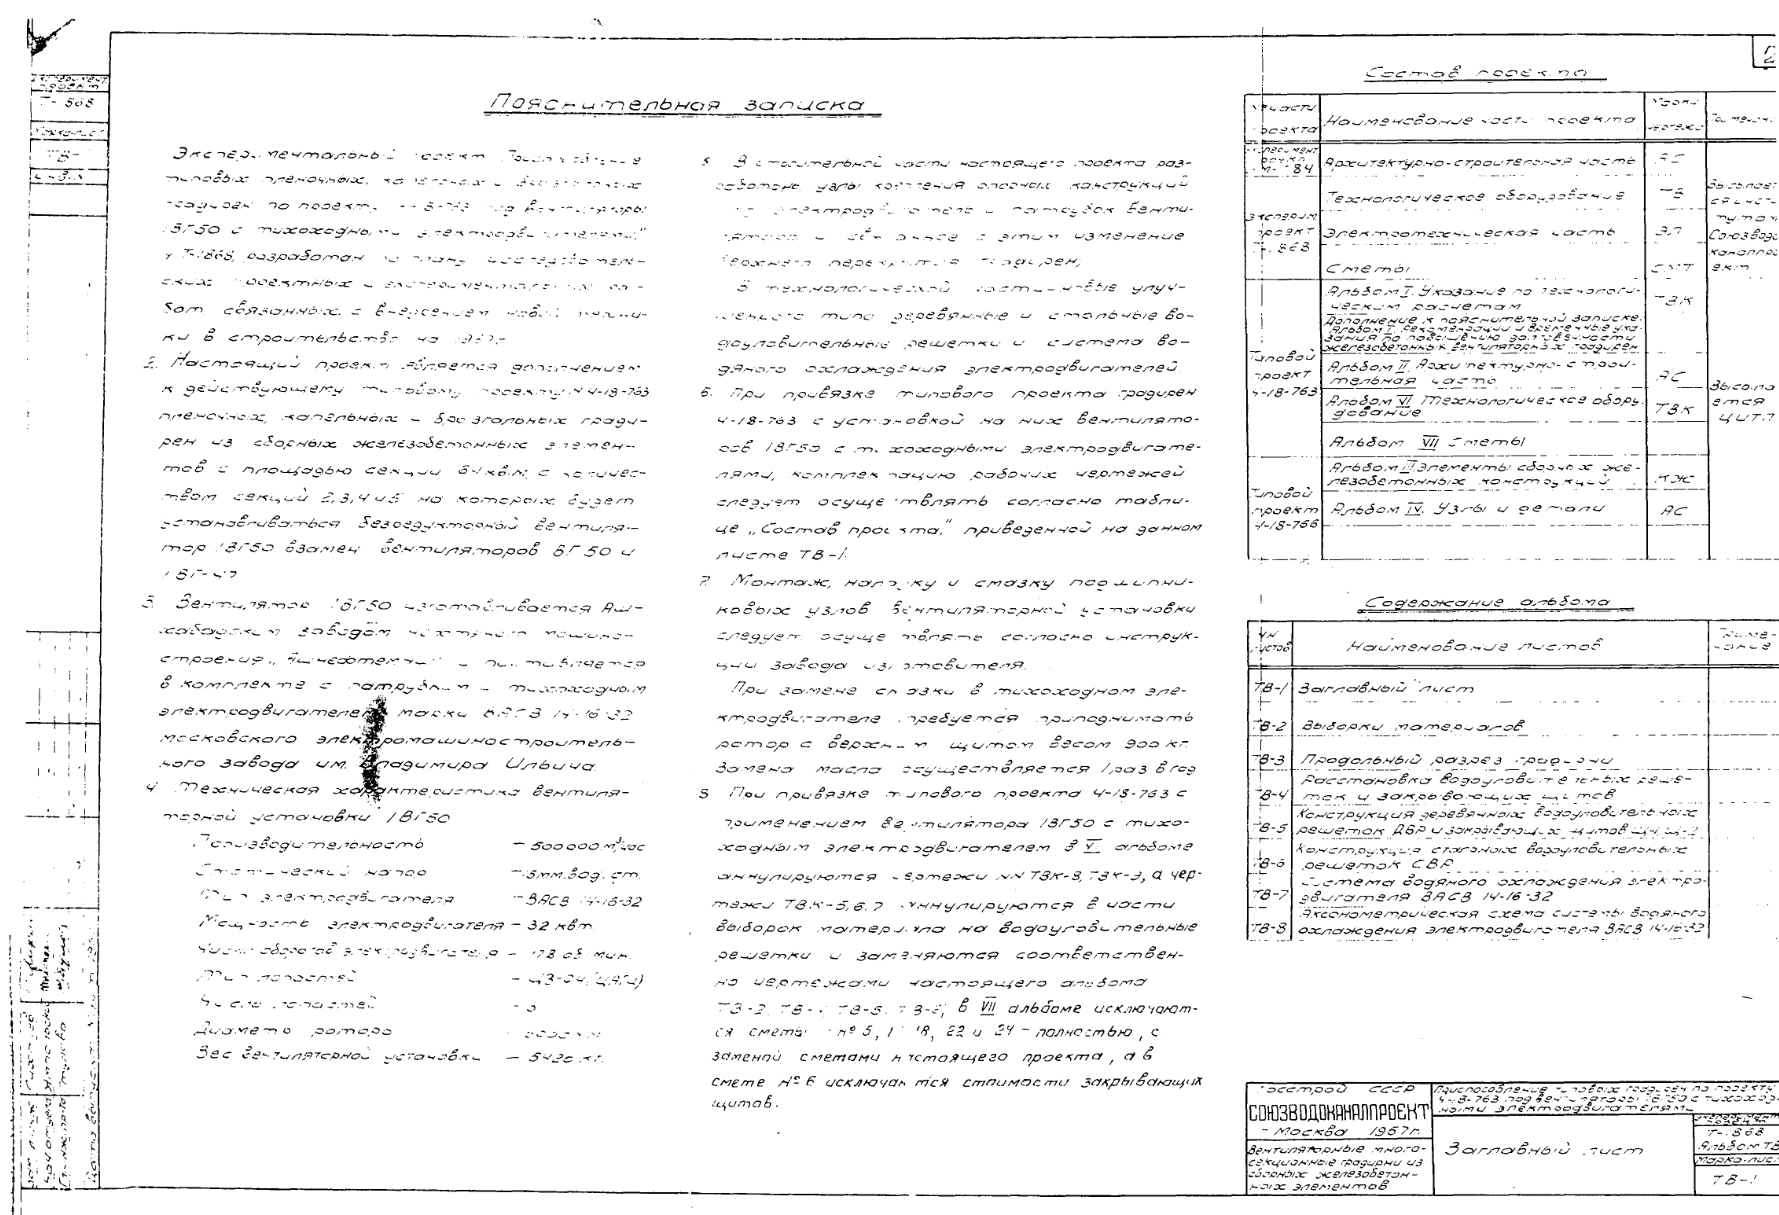 2
Пояснительная записка
Экспериментальный проект „Приспособление
типовых пленочных, капельных и брызгальных
градирен по проекту 4-18-763 под вентиляторы
1ВГ50 с тихоходными электродвигателями"
№ Т-1868, разработан по плану
ских проектных и экспериментальных ра-
бот связанных с внедрением новой техни-
ки в строительство на 1967г.
2. Настоящий проект является дополнением
к действующему типовому проекту № 4-18-763
пленочных, капельных и брызгальных гради-
рен из сборных железобетонных элемен-
тов с площадью секции 64 кв.м; с количес-
твом секций 2,3,4 и 5 на которых будет
устанавливаться безредукторный вентиля-
тор 1ВГ50 взамен вентиляторов ВГ50 и
1ВГ-47
3. Вентилятор 1ВГ50 изготавливается Аш-
хабадским заводом нефтяного машино-
строения „ и поставляется
в комплекте с патрубком и тихоходным
электродвигателем марки ВАСВ 14-16-32
московского электромашиностроитель-
ного завода им. Владимира Ильича.
4. Техническая характеристика вентиля-
торной установки 1ВГ50
Производительность – 500000 м³/час
Статический напор – 15мм. вод. ст.
Тип электродвигателя – ВАСВ 14-16-32
Мощность электродвигателя – 32 квт.
Число оборотов электродвигателя – 178 об. мин.
Тип лопастей
Число лопастей – 3
Диаметр ротора
Вес вентиляторной установки – 5420 кг.
5. В строительной части настоящего проекта раз-
работаны узлы крепления опорных конструкций
под электродвигатель и патрубок венти-
лятора и связанное с этим изменение
верхнего перекрытия градирен;
В технологической части – новые улуч-
шенного типа деревянные и стальные во-
доуловительные решетки и система во-
дяного охлаждения электродвигателей.
6. При привязке типового проекта градирен
4-18-763 с установкой на них вентилято-
ров 1ВГ50 с тихоходными электродвигате-
лями, комплектацию рабочих чертежей
следует осуществлять согласно табли-
це „Состав проекта," приведенной на данном
листе ТВ-1.
7. Монтаж, наладку и смазку подшипни-
ковых узлов вентиляторной установки
следует осуществлять согласно инструк-
ции завода изготовителя.
При замене смазки в тихоходном эле-
ктродвигателе требуется приподнимать
ротор с верхним щитом весом 900 кг.
Замена масла осуществляется 1 раз в год
8. При привязке типового проекта 4-18-763 с
применением вентилятора 1ВГ50 с тихо-
ходным электродвигателем в VI альбоме
аннулируются чертежи NN ТВК-8, ТВК-9, а чер-
тежи ТВК-5,6,7 аннулируются в части
выборок материала на водоуловительные
решетки и заменяются соответствен-
но чертежами настоящего альбома
ТВ-2, ТВ-4, ТВ-5, ТВ-6; в VII альбоме исключают-
ся сметы №№ 5, 18, 22 и 24 – полностью, с
заменой сметами настоящего проекта, а в
смете № 6 исключаются стоимости закрывающих
щитов.
Состав проекта
№ части проекта
Наименование части проекта
Марка чертежа
Примечан.
Архитектурно-строительная часть АС
Эксперим. проект Т-1868
Технологическое оборудование ТВ
Электротехническая часть ЭЛ
Сметы СМТ
Высылается инст-
тутом
Союзводо-
каналпро-
ект
Типовой проект 4-18-763
Альбом I. Указание по технологи-
ческим расчетам ТВК
Дополнение к пояснительной записке.
Альбом I. Рекомендации и временные ука-
зания по повышению долговечности
железобетонных вентиляторных градирен
Альбом II. Архитектурно-строи-
тельная часть АС
Альбом VI Технологическое обору-
дование ТВК
Альбом VII Сметы
Высыла-
ется
ЦИТП
Типовой проект 4-18-766
Альбом III Элементы сборных же-
лезобетонных конструкций КЖ
Альбом IV. Узлы и детали АС
Содержание альбома
НН листов
Наименование листов
Приме-
чание
ТВ-1 Заглавный лист
ТВ-2 Выборки материалов
ТВ-3 Продольный разрез градирни
ТВ-4 Расстановка водоуловительных реше-
ток и закрывающих щитов
ТВ-5 Конструкция деревянных водоуловительных
решеток ДВР и закрывающих щитов Щ-1, Щ-2
ТВ-6 Конструкция стальных водоуловительных
решеток СВР
ТВ-7 Система водяного охлаждения электро-
двигателя ВАСВ 14-16-32
ТВ-8 Аксонометрическая схема системы водяного
охлаждения электродвигателя ВАСВ 14-16-32
Госстрой СССР
СОЮЗВОДОКАНАЛПРОЕКТ
Москва 1967г.
Вентиляторные много-
секционные градирни из
сборных железобетон-
ных элементов
Приспособление типовых градирен по проекту
4-18-763 под вентиляторы 1ВГ50 с тихоход-
ными электродвигателями
Заглавный лист
Т-1868
Альбом ТВ
Марка-лист
ТВ-1